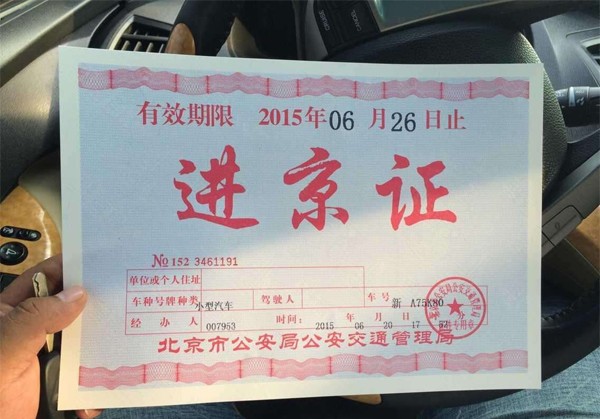 有效期限 2015年06月26日止
进京证
№152 3461191
单位或个人住址
车种号牌种类 小型汽车 驾驶人 车号 新 A75K80
经办人 007953 时间: 2015 年 06 月 20 日 17 52
北京市公安局公安交通管理局